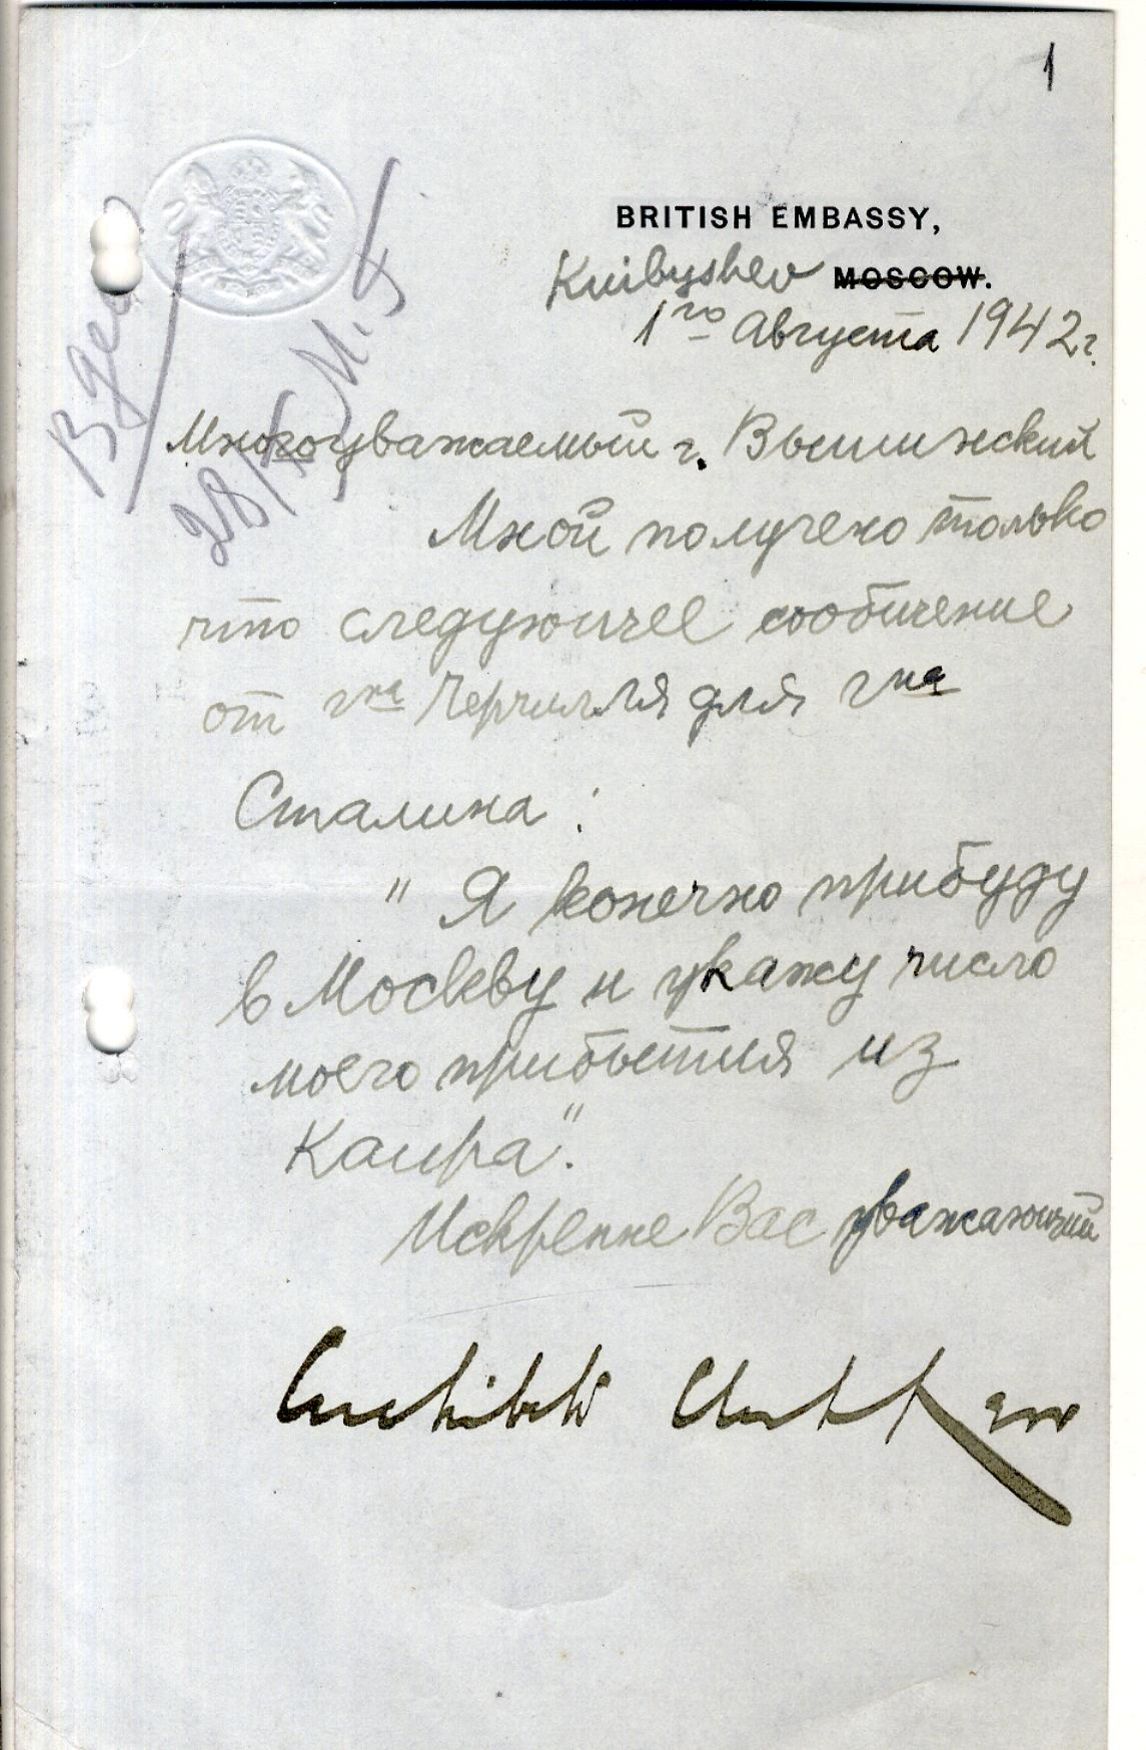 1
BRITISH EMBASSY,
Kuibyshev MOSCOW.
1го Августа 1942 г.
В дело
28/X М.Г.
Многоуважаемый г. Вышинский
Мной получено только
что следующее сообщение
от гна Черчилля для гна
Сталина:
"Я конечно прибуду
в Москву и укажу число
моего прибытия из
Каира".
Искренне Вас уважающий
Archibald Clark Kerr